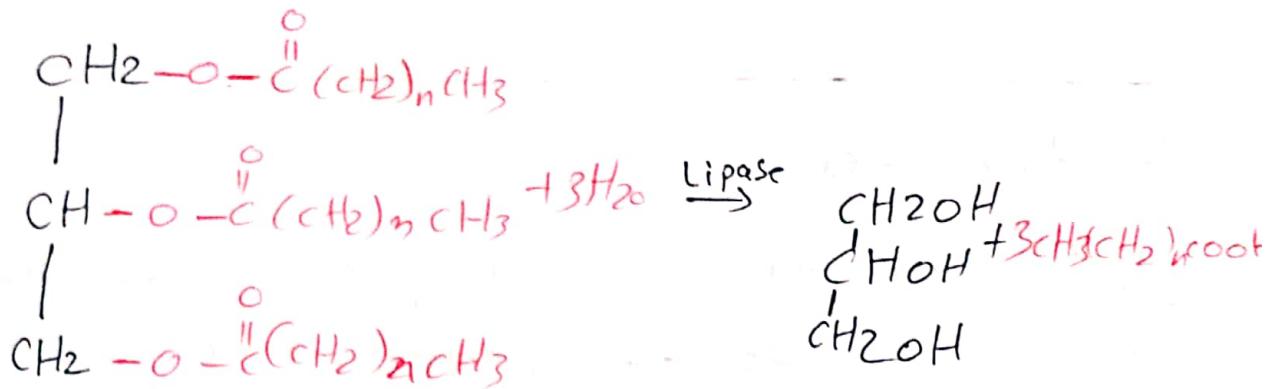 O
||
CH2-O-C(CH2)nCH3
|
O
||
CH-O-C(CH2)nCH3 +3H2O Lipase →
CH2OH
CHOH +3CH3(CH2)nCOOH
CH2OH
|
O
||
CH2-O-C(CH2)nCH3